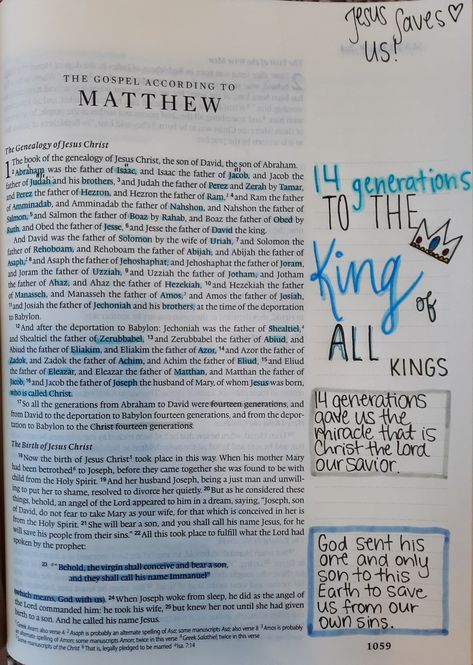 Jesus Saves
us!
THE GOSPEL ACCORDING TO
MATTHEW
The Genealogy of Jesus Christ
1 The book of the genealogy of Jesus Christ, the son of David, the son of Abraham.
2 Abraham was the father of Isaac, and Isaac the father of Jacob, and Jacob the
father of Judah and his brothers, 3 and Judah the father of Perez and Zerah by Tamar,
and Perez the father of Hezron, and Hezron the father of Ram, 4 and Ram the father
of Amminadab, and Amminadab the father of Nahshon, and Nahshon the father of
Salmon, 5 and Salmon the father of Boaz by Rahab, and Boaz the father of Obed by
Ruth, and Obed the father of Jesse, 6 and Jesse the father of David the king.
And David was the father of Solomon by the wife of Uriah, 7 and Solomon the
father of Rehoboam, and Rehoboam the father of Abijah, and Abijah the father of
Asaph, 8 and Asaph the father of Jehoshaphat, and Jehoshaphat the father of Joram,
and Joram the father of Uzziah, 9 and Uzziah the father of Jotham, and Jotham
the father of Ahaz, and Ahaz the father of Hezekiah, 10 and Hezekiah the father
of Manasseh, and Manasseh the father of Amos, and Amos the father of Josiah,
11 and Josiah the father of Jechoniah and his brothers, at the time of the deportation
to Babylon.
12 And after the deportation to Babylon: Jechoniah was the father of Shealtiel,
and Shealtiel the father of Zerubbabel, 13 and Zerubbabel the father of Abiud, and
Abiud the father of Eliakim, and Eliakim the father of Azor, 14 and Azor the father of
Zadok, and Zadok the father of Achim, and Achim the father of Eliud, 15 and Eliud
the father of Eleazar, and Eleazar the father of Matthan, and Matthan the father of
Jacob, 16 and Jacob the father of Joseph the husband of Mary, of whom Jesus was born,
who is called Christ.
17 So all the generations from Abraham to David were fourteen generations, and
from David to the deportation to Babylon fourteen generations, and from the depor-
tation to Babylon to the Christ fourteen generations.
The Birth of Jesus Christ
18 Now the birth of Jesus Christ took place in this way. When his mother Mary
had been betrothed to Joseph, before they came together she was found to be with
child from the Holy Spirit. 19 And her husband Joseph, being a just man and unwill-
ing to put her to shame, resolved to divorce her quietly. 20 But as he considered these
things, behold, an angel of the Lord appeared to him in a dream, saying, "Joseph, son
of David, do not fear to take Mary as your wife, for that which is conceived in her is
from the Holy Spirit. 21 She will bear a son, and you shall call his name Jesus, for he
will save his people from their sins." 22 All this took place to fulfill what the Lord had
spoken by the prophet:
23 "Behold, the virgin shall conceive and bear a son,
and they shall call his name Immanuel"
(which means, God with us). 24 When Joseph woke from sleep, he did as the angel of
the Lord commanded him: he took his wife, 25 but knew her not until she had given
birth to a son. And he called his name Jesus.
14 generations
TO THE
King
of
ALL
KINGS
14 generations
gave us the
miracle that is
Christ the Lord
our savior.
God sent his
one and only
son to this
Earth to save
us from our
own sins.
1059